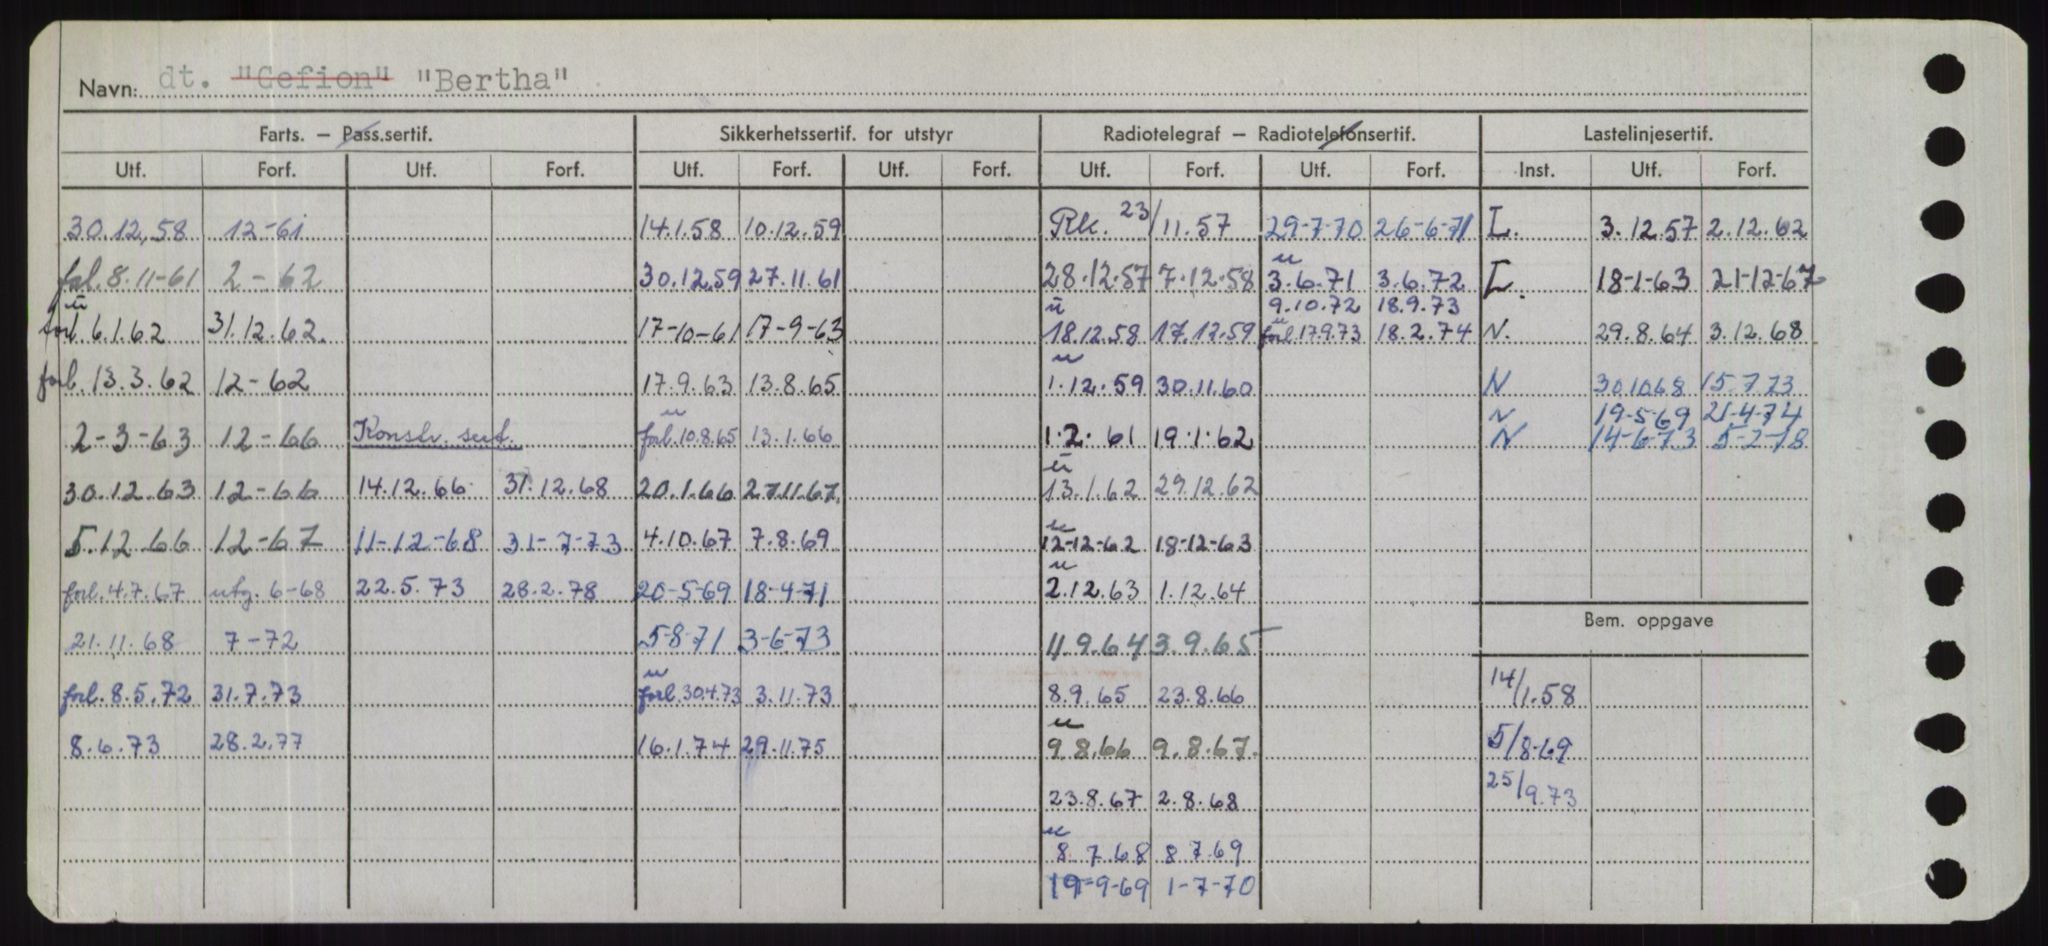 Navn: dt. "Gefion" "Bertha"
Farts. — Pass.sertif. Sikkerhetssertif. for utstyr Radiotelegraf — Radiotelefonsertif. Lastelinjesertif.
Utf. Forf. Utf. Forf. Utf. Forf. Utf. Forf. Utf. Forf. Utf. Forf. Inst. Utf. Forf.
30.12.58 12-61 14.1.58 10.12.59 Rk. 23/11.57 29-7-70 26-6-71 L. 3.12.57 2.12.62
fbl. 8.11-61 2-62 30.12.59 27.11.61 28.12.57 7.12.58 u 3.6.71 3.6.72 L. 18-1-63 21-12-67
9.10.72 18.9.73
u 6.1.62 31.12.62. 17-10-61 17-9-63 u 18.12.58 17.12.59 u forl. 17.9.73 18.2.74 N. 29.8.64 3.12.68
forl. 13.3.62 12-62 17.9.63 13.8.65 u 1.12.59 30.11.60 N 30.10.68 15.7.73
N 19-5-69 21-4-74
2-3-63 12-66 Konstr. sert. u forl. 10.8.65 13.1.66 1.2.61 19.1.62 N 14-6-73 5-2-78
30.12.63 12-66 14.12.66 31.12.68 20.1.66 27.11.67. u 13.1.62 29.12.62
5.12.66 12-67 11-12-68 31-7-73 4.10.67 7.8.69 u 12-12-62 18-12-63
forl. 4.7.67 utg. 6-68 22.5.73 28.2.78 20-5-69 18-4-71 u 2.12.63 1.12.64
Bem. oppgave
21.11.68 7-72 5-8-71 3-6-73 11.9.64 3.9.65
forl. 8.5.72 31.7.73 u forl. 30.4.73 3.11.73 8.9.65 23.8.66 14/1.58
8.6.73 28.2.77 16.1.74 29.11.75 u 9.8.66 9.8.67. 5/8-69
23.8.67 2.8.68 25/9.73
u 8.7.68 8.7.69
19-9-69 1-7-70